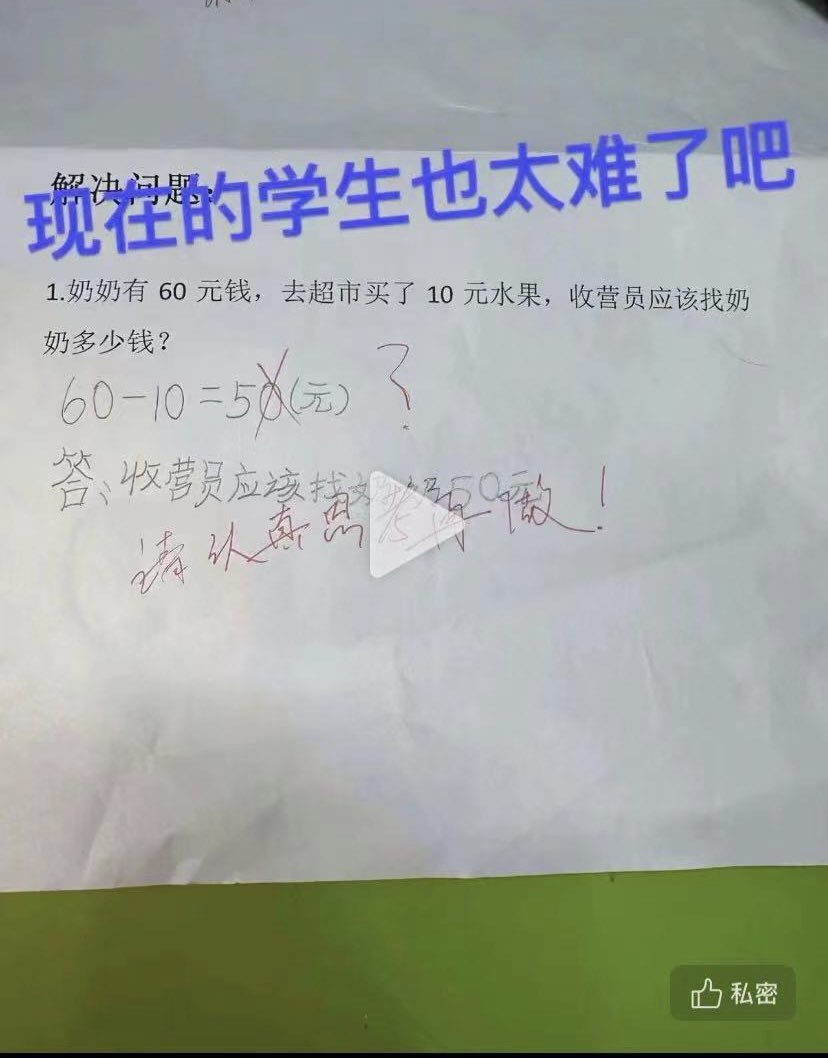 现在的学生也太难了吧
解决问题：
1.奶奶有 60 元钱，去超市买了 10 元水果，收营员应该找奶
奶多少钱？
60-10=50(元) ？
答、收营员应该找 50元
请认真思考再做！
私密